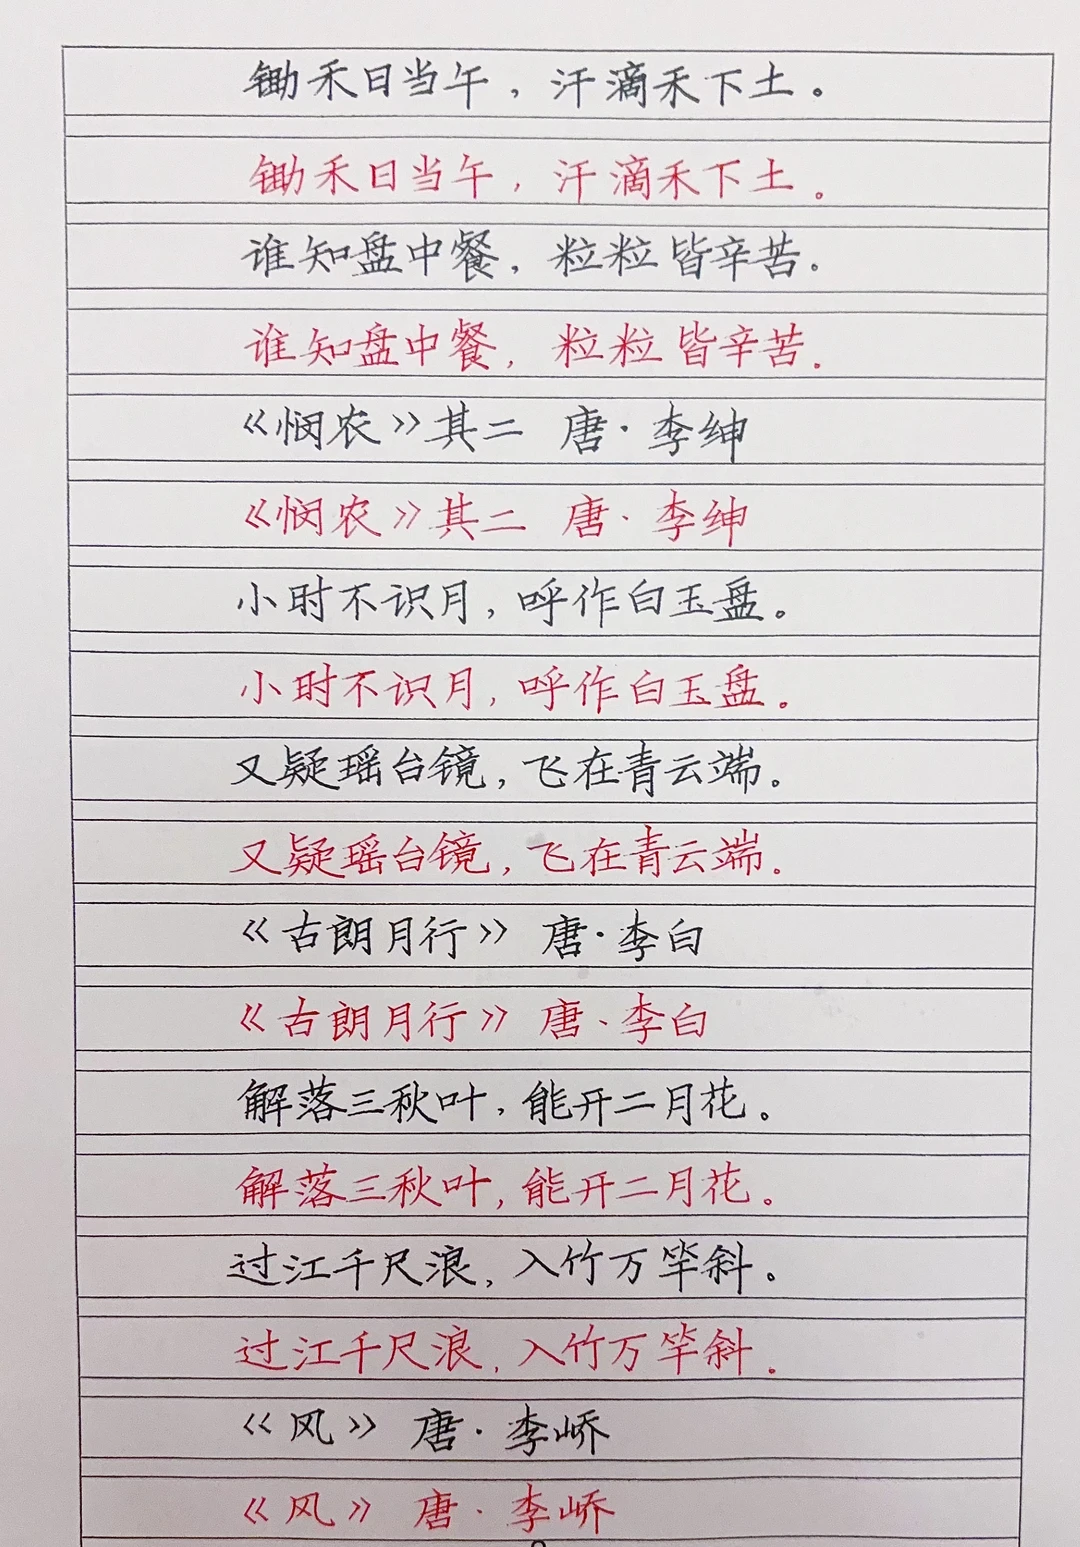 锄禾日当午，汗滴禾下土。
锄禾日当午，汗滴禾下土。
谁知盘中餐，粒粒皆辛苦。
谁知盘中餐，粒粒皆辛苦.
《悯农》其二 唐·李绅
《悯农》其二 唐·李绅
小时不识月，呼作白玉盘。
小时不识月，呼作白玉盘。
又疑瑶台镜，飞在青云端。
又疑瑶台镜，飞在青云端.
《古朗月行》 唐·李白
《古朗月行》 唐、李白
解落三秋叶，能开二月花。
解落三秋叶，能开二月花。
过江千尺浪，入竹万竿斜。
过江千尺浪，入竹万竿斜.
《风》 唐·李峤
《风》 唐·李峤